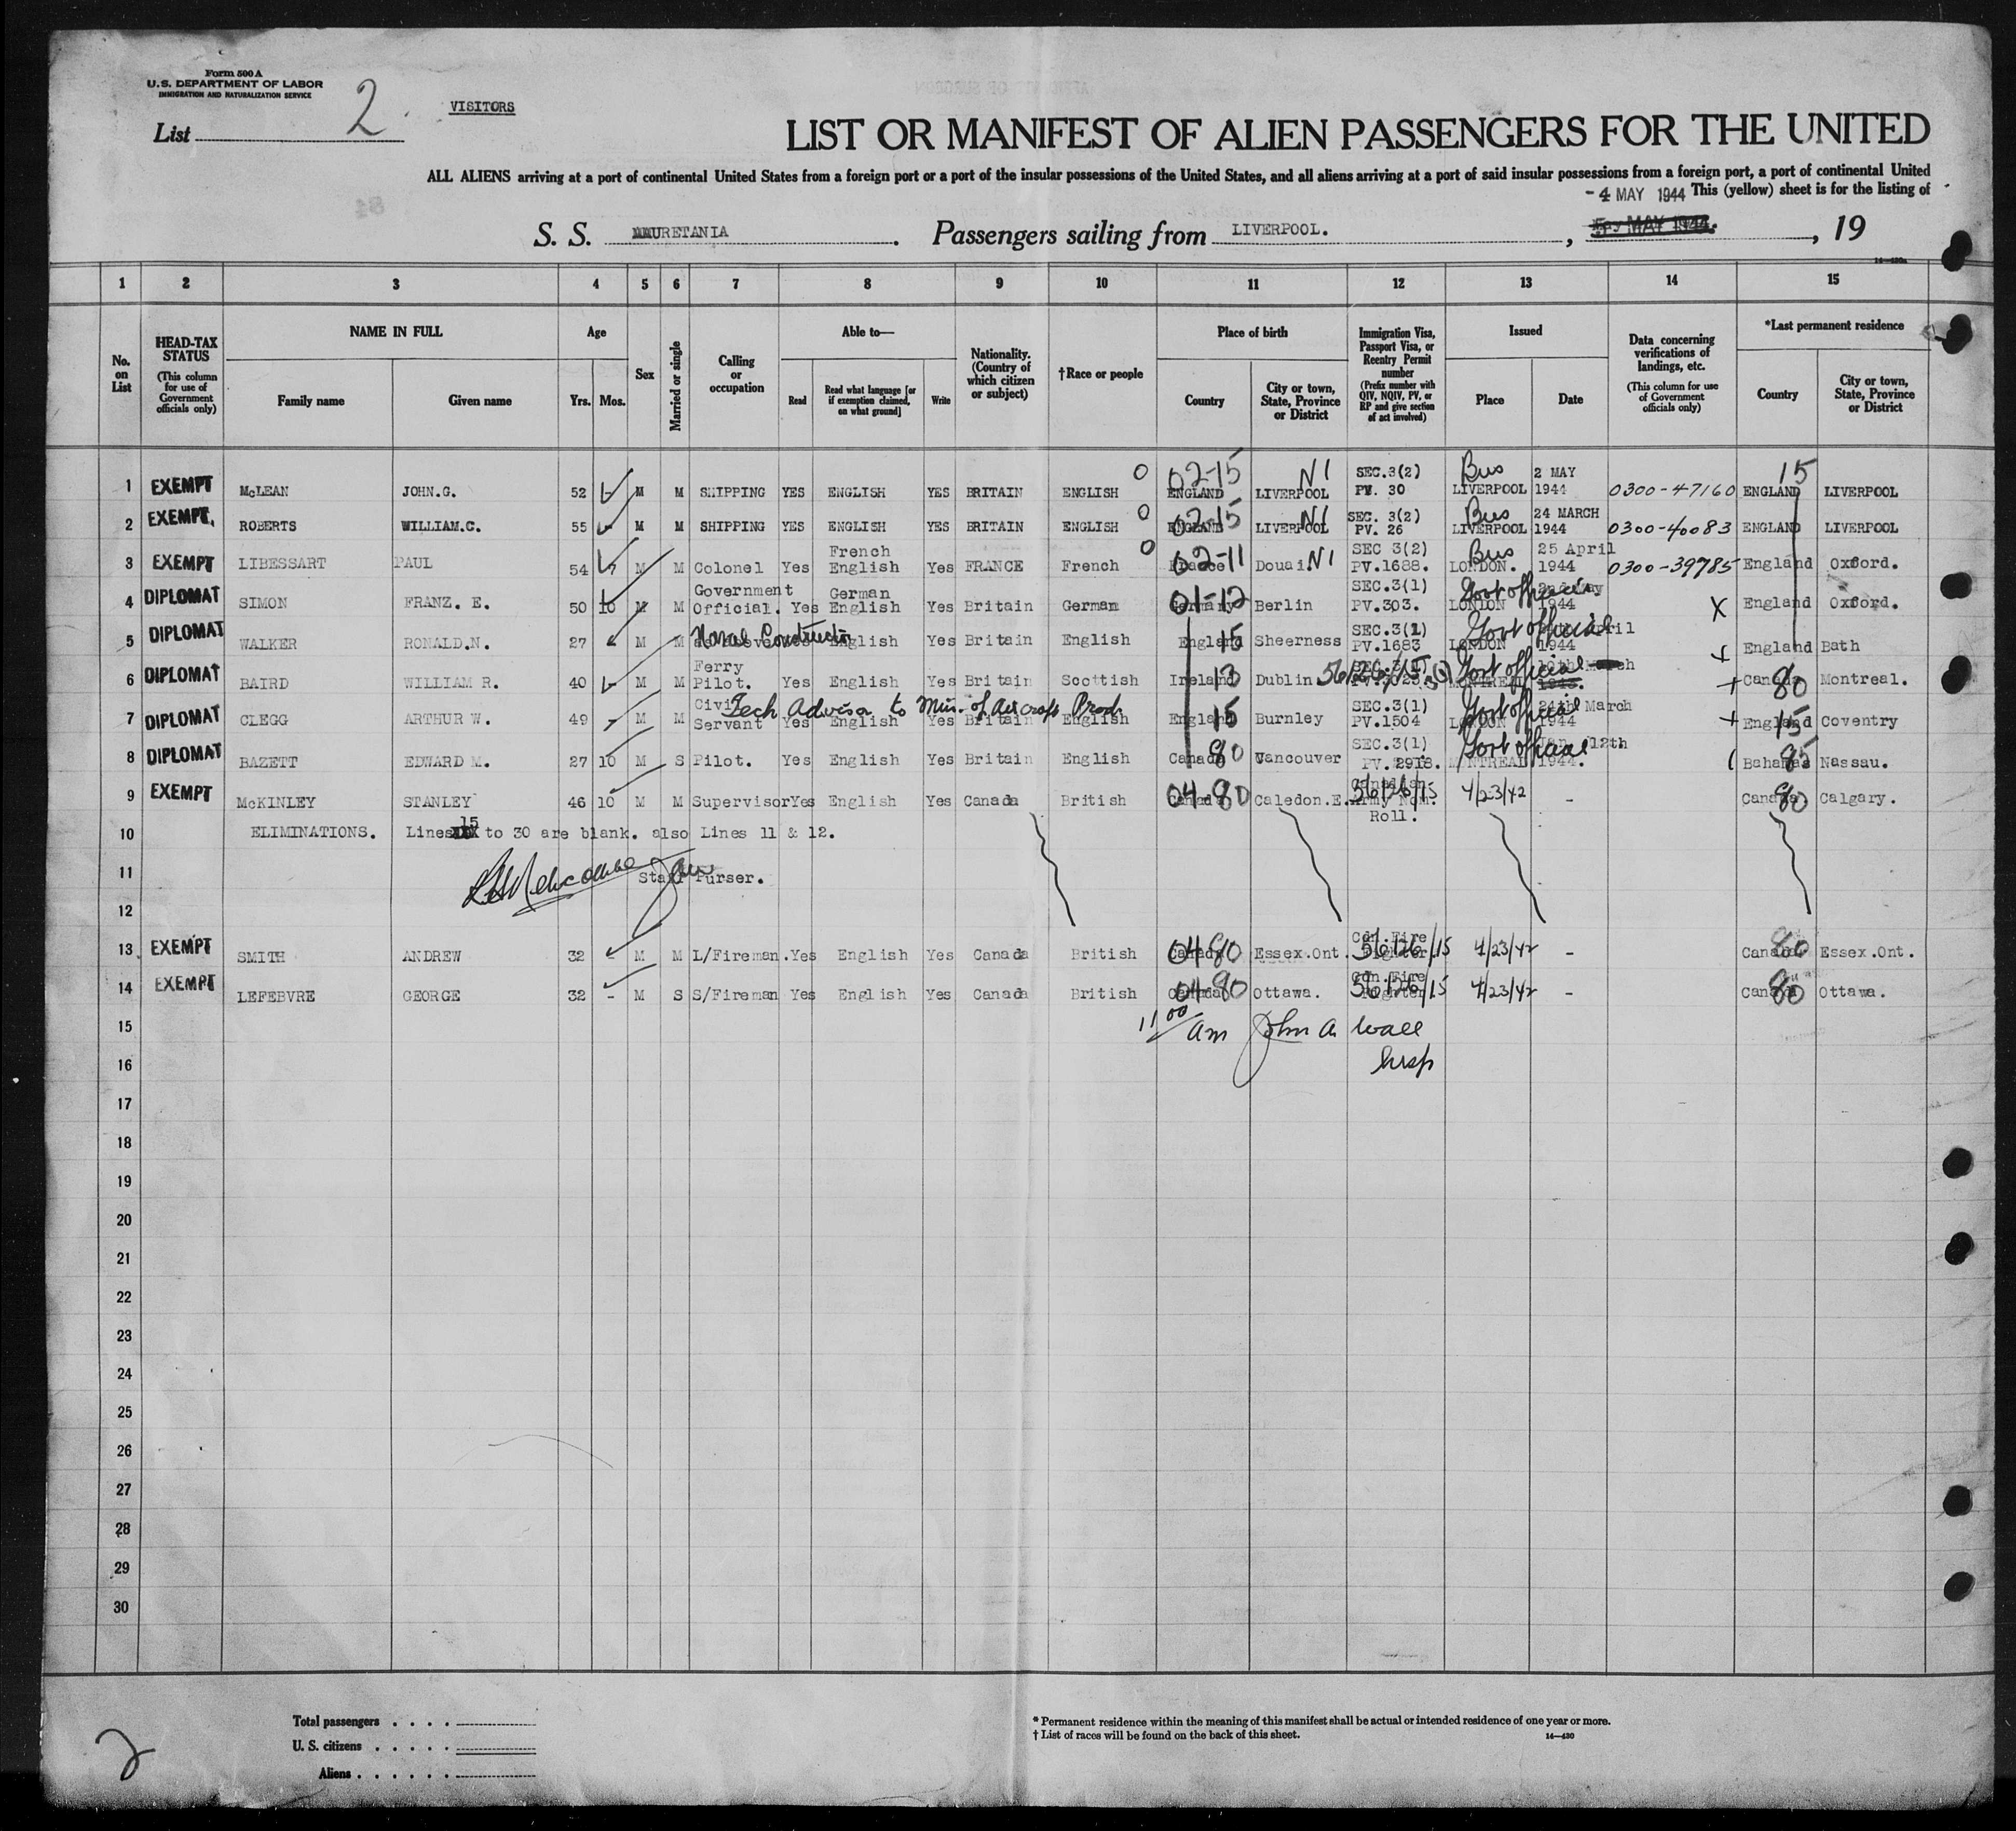 Form 500 A
U.S. DEPARTMENT OF LABOR
IMMIGRATION AND NATURALIZATION SERVICE
List 2
VISITORS
LIST OR MANIFEST OF ALIEN PASSENGERS FOR THE UNITED
ALL ALIENS arriving at a port of continental United States from a foreign port or a port of the insular possessions of the United States, and all aliens arriving at a port of said insular possessions from a foreign port, a port of continental United
- 4 MAY 1944 This (yellow) sheet is for the listing of
S. S. MAURETANIA. Passengers sailing from LIVERPOOL. , MAY 1944. , 19
1 2 3 4 5 6 7 8 9 10 11 12 13 14 15
No. on List
HEAD-TAX STATUS (This column for use of Government officials only)
NAME IN FULL
Family name Given name
Age
Yrs. Mos.
Sex
Married or single
Calling or occupation
Able to—
Read Read what language [or if exemption claimed, on what ground] Write
Nationality. (Country of which citizen or subject)
†Race or people
Place of birth
Country City or town, State, Province or District
Immigration Visa, Passport Visa, or Reentry Permit number (Prefix number with QIV, NQIV, PV, or RP and give section of act involved)
Issued
Place Date
Data concerning verifications of landings, etc. (This column for use of Government officials only)
*Last permanent residence
Country City or town, State, Province or District
1 EXEMPT McLEAN JOHN.G. 52 M M SHIPPING YES ENGLISH YES BRITAIN ENGLISH 0 02-15 ENGLAND N1 LIVERPOOL SEC.3(2) PV. 30 Bus LIVERPOOL 2 MAY 1944 0300-47160 15 ENGLAND LIVERPOOL
2 EXEMPT. ROBERTS WILLIAM.C. 55 M M SHIPPING YES ENGLISH YES BRITAIN ENGLISH 0 02-15 ENGLAND N1 LIVERPOOL SEC. 3(2) PV. 26 Bus LIVERPOOL 24 MARCH 1944 0300-40083 ENGLAND LIVERPOOL
3 EXEMPT LIBESSART PAUL 54 7 M M Colonel Yes French English Yes FRANCE French 0 02-11 France Douai. N1 SEC 3(2) PV.1688. Bus LONDON. 25 April 1944 0300-39785 England Oxford.
4 DIPLOMAT SIMON FRANZ. E. 50 10 M M Government Official. Yes German English Yes Britain German 01-12 Germany Berlin SEC.3(1) PV.303. Govt official LONDON 1944 X England Oxford.
5 DIPLOMAT WALKER RONALD.N. 27 M M Naval Constructor English Yes Britain English England 15 Sheerness SEC.3(1) PV.1683 Govt official LONDON April 1944 + England Bath
6 DIPLOMAT BAIRD WILLIAM R. 40 M M Ferry Pilot. Yes English Yes Britain Scottish Ireland 13 Dublin 56126/15 SEC.3(1) Govt official MONTREAL March + Canada 80 Montreal.
7 DIPLOMAT CLEGG ARTHUR W. 49 - M M Civil Servant Tech Advisor to Min. of Aircraft Prod Yes English Yes Britain English England 15 Burnley SEC.3(1) PV.1504 Govt official LONDON 24th March 1944 + England 15 Coventry
8 DIPLOMAT BAZETT EDWARD M. 27 10 M S Pilot. Yes English Yes Britain English Canada 80 Vancouver SEC.3(1) PV. 2918. Govt official MONTREAL 12th 1944. Bahamas 85 Nassau.
9 EXEMPT McKINLEY STANLEY 46 10 M M Supervisor Yes English Yes Canada British 04-80 Canada Caledon.E. Canadian Army Nom. Roll. 56126/15 4/23/42 - Canada 80 Calgary.
10 ELIMINATIONS. Lines 15 to 30 are blank. also Lines 11 & 12.
11 Staff Purser.
12
13 EXEMPT SMITH ANDREW 32 - M M L/Fireman. Yes English Yes Canada British 04-80 Canada Essex.Ont. Cdn.Fire Fighter 56126/15 4/23/42 - Canada 80 Essex.Ont.
14 EXEMPT LEFEBVRE GEORGE 32 - M S S/Fireman Yes English Yes Canada British 04-80 Canada Ottawa. Cdn.Fire Fighter 56126/15 4/23/42 - Canada 80 Ottawa.
15 11 00 am John A Wall
16 Insp
17
18
19
20
21
22
23
24
25
26
27
28
29
30
Total passengers . . . .
U. S. citizens . . . . .
Aliens . . . . . .
2
* Permanent residence within the meaning of this manifest shall be actual or intended residence of one year or more.
† List of races will be found on the back of this sheet.
14—430